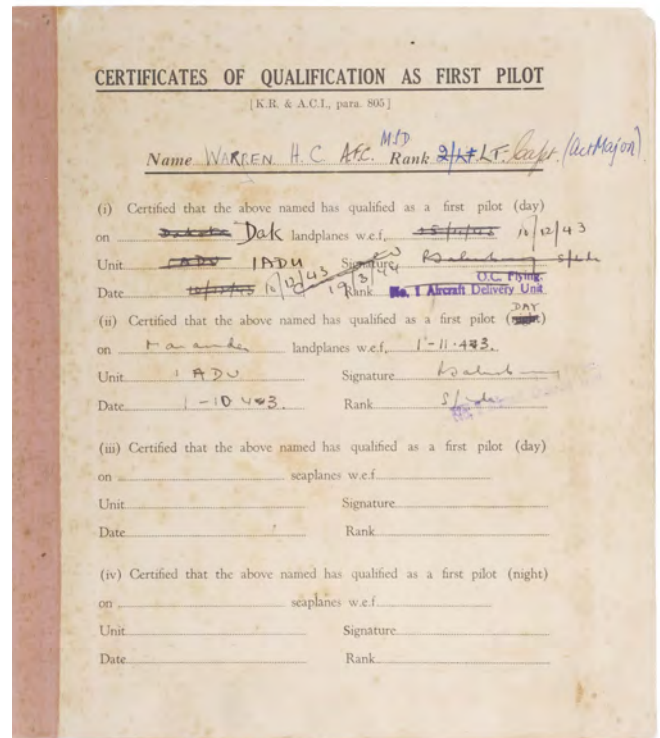 CERTIFICATES OF QUALIFICATION AS FIRST PILOT
[K.R. & A.C.I., para. 805]
Name WARREN H. C. AFC. MSD Rank 2/Lt. LT. Capt. (Act Major)
(i) Certified that the above named has qualified as a first pilot (day)
on Dakota Dak landplanes w.e.f. 10/12/43
Unit 1ADU 1ADU Signature S/Ldr
O.C. Flying.
Date 10/12/43 19/3/44 Rank No. 1 Aircraft Delivery Unit
DAY
(ii) Certified that the above named has qualified as a first pilot (night)
on Marauder landplanes w.e.f. 1-11-43.
Unit 1 ADU Signature
Date 1-10 43. Rank S/Ldr
(iii) Certified that the above named has qualified as a first pilot (day)
on seaplanes w.e.f.
Unit Signature
Date Rank
(iv) Certified that the above named has qualified as a first pilot (night)
on seaplanes w.e.f.
Unit Signature
Date Rank